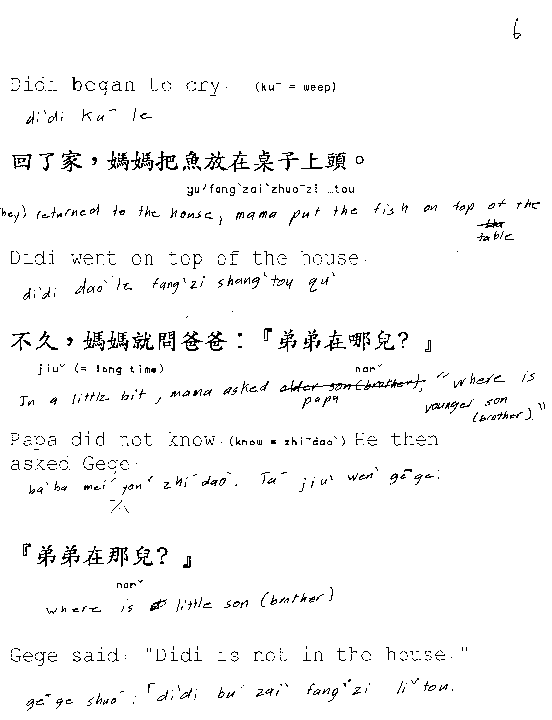 6
Didi began to cry. (kuˉ = weep)
diˋdi kuˉ le
回了家，媽媽把魚放在桌子上頭。
yuˊfangˋzaiˋzhuoˉzi …tou
hey) returned to the house, mama put the fish on top of the
the
table
Didi went on top of the house.
diˋdi daoˋle fangˊzi shangˋtou quˋ
不久，媽媽就問爸爸：『弟弟在哪兒？』
jiuˇ (= long time) narˇ
In a little bit, mama asked older son (brother), "where is
papa younger son
(brother)."
Papa did not know. (know = zhiˉdaoˋ) He then
asked Gege:
baˋba meiˊyouˇ zhiˉdaoˋ. Taˉ jiuˋ wenˋ gēˉge:
『弟弟在那兒？』
narˇ
where is little son (brother)
Gege said: "Didi is not in the house."
geˉge shuoˉ:「diˋdi buˊ zaiˋ fangˊzi liˇtou.